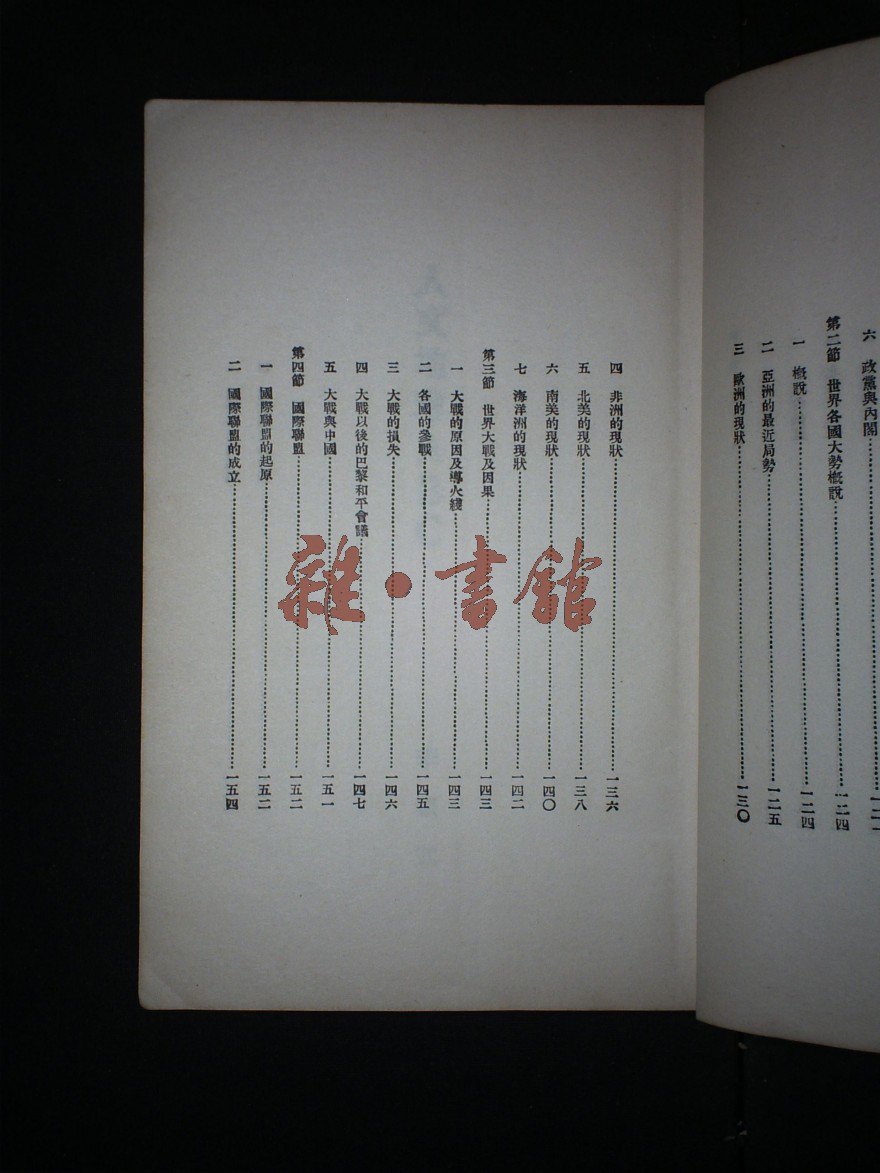 六 政黨與內閣
第二節 世界各國大勢概說 一二四
一 概說 一二四
二 亞洲的最近局勢 一二五
三 歐洲的現狀 一三〇
四 非洲的現狀 一三六
五 北美的現狀 一三八
六 南美的現狀 一四〇
七 海洋洲的現狀 一四二
第三節 世界大戰及因果 一四三
一 大戰的原因及導火綫 一四三
二 各國的參戰 一四五
三 大戰的損失 一四六
四 大戰以後的巴黎和平會議 一四七
五 大戰與中國 一五一
第四節 國際聯盟 一五二
一 國際聯盟的起原 一五二
二 國際聯盟的成立 一五四
雜·書館